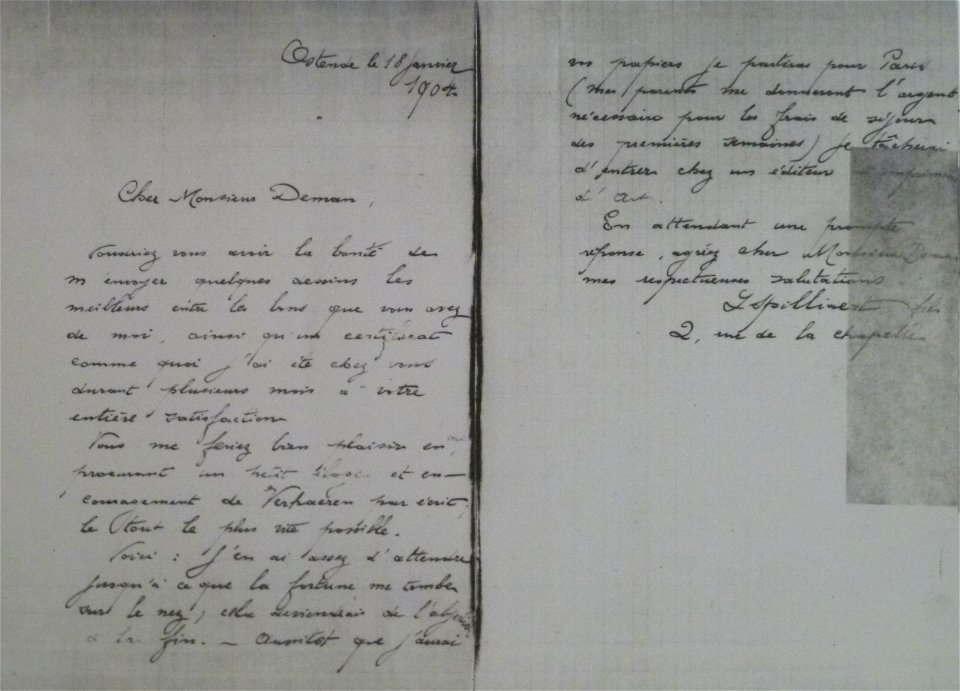 Ostende le 18 Janvier
1904.
Cher Monsieur Deman,
Voudriez vous avoir la bonté de
m'envoyer quelques dessins les
meilleurs entre les bons que vous avez
de moi, ainsi qu'un certificat
comme quoi j'ai été chez vous
durant plusieurs mois à votre
entière satisfaction
Vous me feriez bien plaisir en
procurant un petit éloge et en-
couragement de Verhaeren par écrit,
le tout le plus vite possible.
Voici : J'en ai assez d'attendre
jusqu'à ce que la fortune me tombe
sur le nez ; cela deviendrait de
à la fin. — Aussitôt que j'aurai
vos papiers je partirai pour Paris
(mes parents me donneront l'argent
nécessaire pour les frais de séjour
des premières semaines) Je tâcherai
d'entrer chez un éditeur
d'Art.
En attendant une prompte
réponse, agréez cher Monsieur Deman
mes respectueuses salutations
L Spilliaert fils
2, rue de la chapelle